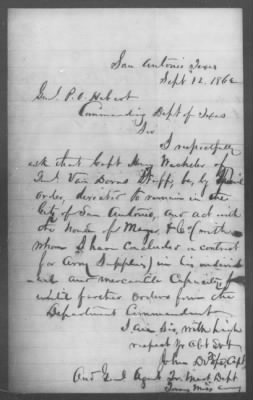 San Antonio Texas
Sept 12. 1862
Genl. P. O. Hebert
Commanding Dept of Texas
Sir
I respectfully
ask that Capt Henry Wechsler of
Genl Van Dorns Staff, be, by Special
order, directed to remain in the
City of San Antonio, and act with
the House of Mayer & Co (with
whom I have concluded a contract
for Army Supplies) in his individ
-ual and mercantile Capacity,
until further orders from the
Department Commandant
I am Sir, with high
respect Yr Obt Svt
John
And Genl Agent Tr. Dept